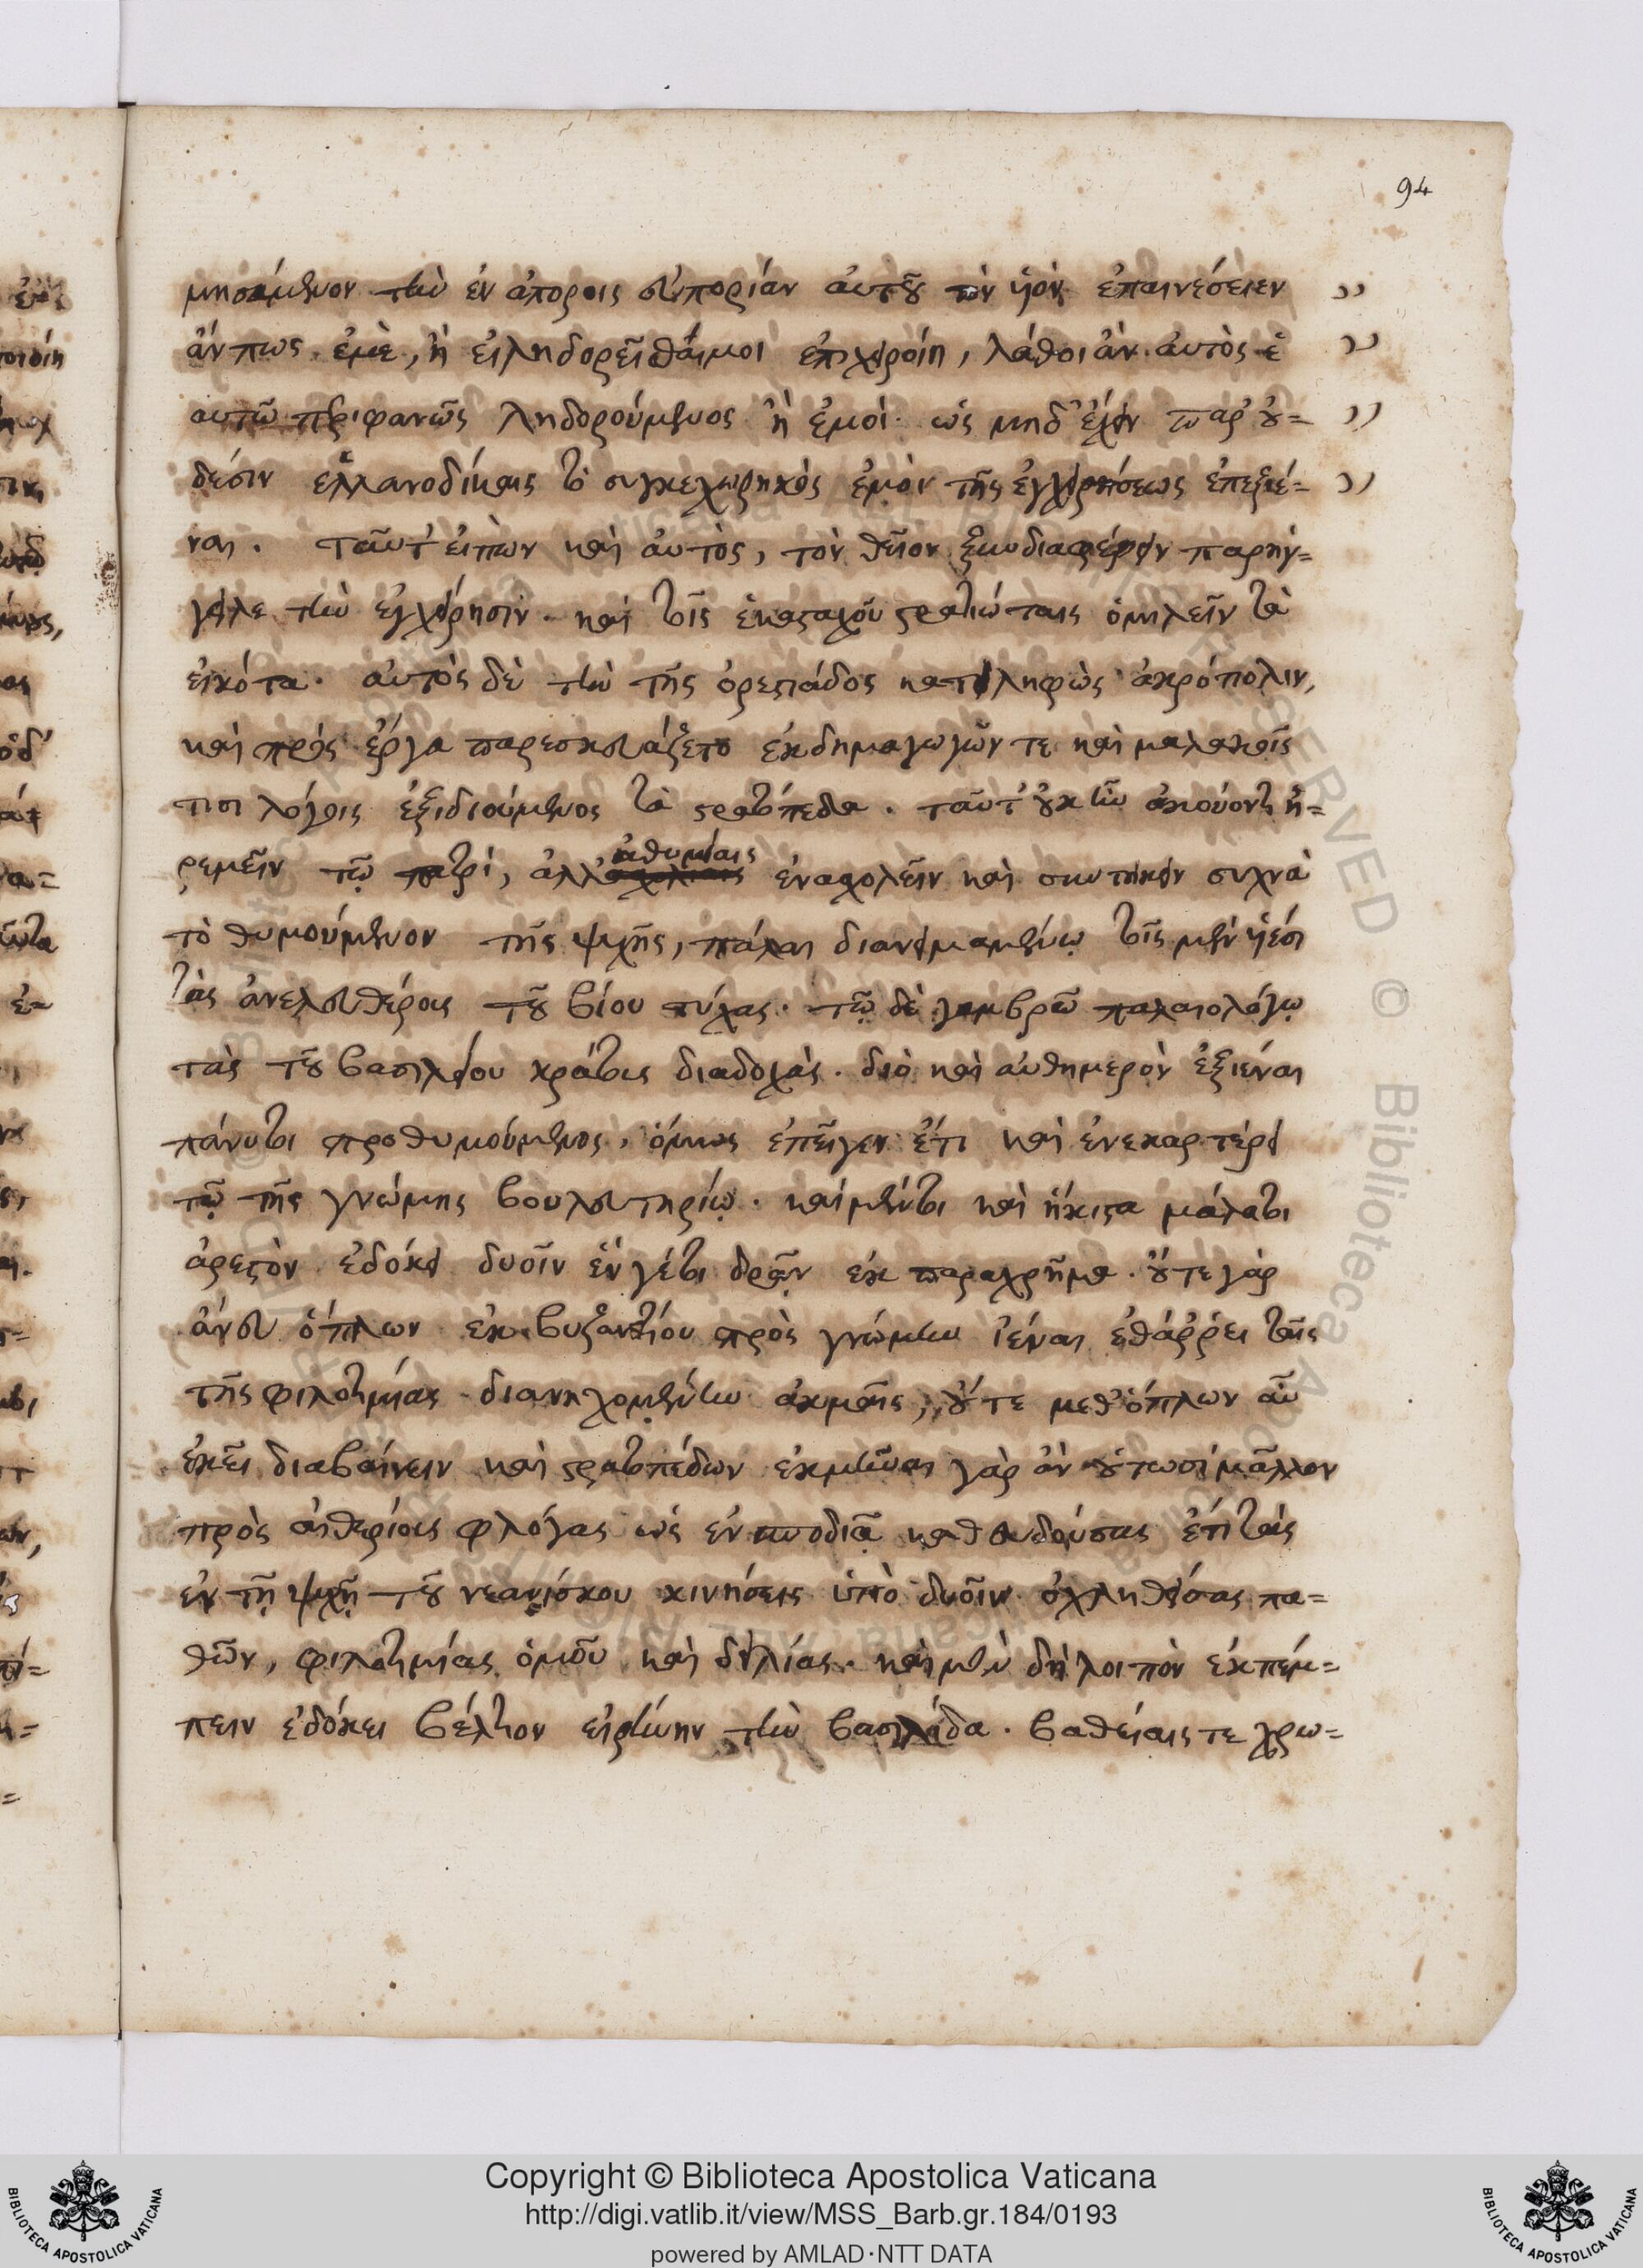 94
μησάμενον τὴν ἐν ἀπόροις εὐπορίαν αὐτοῦ τὸν ἡὸν ἐπαινέσειεν ”
ἄν πως ἐμὲ, ἢ εἰ ληδορεῖσθαί μοι ἐπιχειροίη, λάθοι ἂν αὐτὸς ἑ ”
αυτῶ περιφανῶς ληδορούμενος ἢ ἐμοὶ· ὡς μηδ' ἔχειν παρ' οὐ= ”
δέσιν ἑλλανοδίκαις τὸ συγκεχωρηκὸς ἐμὸν τῆς ἐγχειρήσεως ἐπεξιέ= ”
ναι. ταῦτ' εἰπὼν καὶ αὐτὸς, τὸν θεῖον ξυνδιαφέρειν παρηγ=
γειλε τὴν ἐγχείρησιν. καὶ τοῖς ἑκασταχοῦ στρατιώταις ὁμιλεῖν τὰ
εἰκότα. αὐτὸς δὲ τὴν τῆς ὀρεστιάδος κατειληφὼς ἀκρόπολιν,
καὶ πρὸς ἔργα παρεσκευάζετο ἐκδημαγωγῶν τε καὶ μαλακοῖς
τισι λόγοις ἐξιδιούμενος τὰ στρατόπεδα. ταῦτ' οὐκ ἦν ἀκούοντι ἠ=
ρεμεῖν τῷ πατρὶ, ἀλλ' ἀθυμίαις ἐνασχολεῖν καὶ συντήκειν συχνὰ
τὸ θυμούμενον τῆς ψυχῆς, πάλαι διανειμαμένῳ τοῖς μὲν ἡέσι
τὰς ἀνελευθέρους τοῦ βίου τύχας. τῷ δὲ γαμβρῶ παλαιολόγῳ
τὰς τοῦ βασιλείου κράτους διαδοχάς. διὸ καὶ αὐθημερὸν ἐξιέναι
πάνυτοι προθυμούμενος, ὅμως ἐπεῖχεν ἔτι καὶ ἐνεκαρτέρει
τῷ τῆς γνώμης βουλευτηρίῳ. καὶ μέντοι καὶ ἥκιστα μάλατοι
ἀρεστὸν ἐδόκει δυοῖν ἕν γέτοι δρᾶν ἐκ παραχρῆμα. οὔτε γὰρ
ἄνευ ὅπλων ἐκ βυζαντίου πρὸς γνώμην ἰέναι ἐθάῤῥει ταῖς
τῆς φιλοτιμίας διανηχομένην ἀκμαῖς, οὔτε μεθ' ὅπλων αὖ
ἐκεῖ διαβαίνειν καὶ στρατοπέδων ἐκμῆναι γὰρ ἂν οὑτωσὶ μᾶλλον
πρὸς αἰθερίους φλόγας ὡς ἐν καθευδούσας ἔτι τὰς
ἐν τῇ ψυχῇ τοῦ νεανίσκου κινήσεις ὑπὸ δυοῖν ὀχληθείσας πα=
θῶν, φιλοτιμίας ὁμοῦ καὶ δειλίας. καὶ μὴν δὴ λοιπὸν ἐκπέμ=
πειν ἐδόκει βέλτιον εἰρήνην τὴν βασιλίδα. βαθείαις τε χρω=
Copyright © Biblioteca Apostolica Vaticana
http://digi.vatlib.it/view/MSS_Barb.gr.184/0193
powered by AMLAD·NTT DATA
BIBLIOTECA APOSTOLICA VATICANA
BIBLIOTECA APOSTOLICA VATICANA